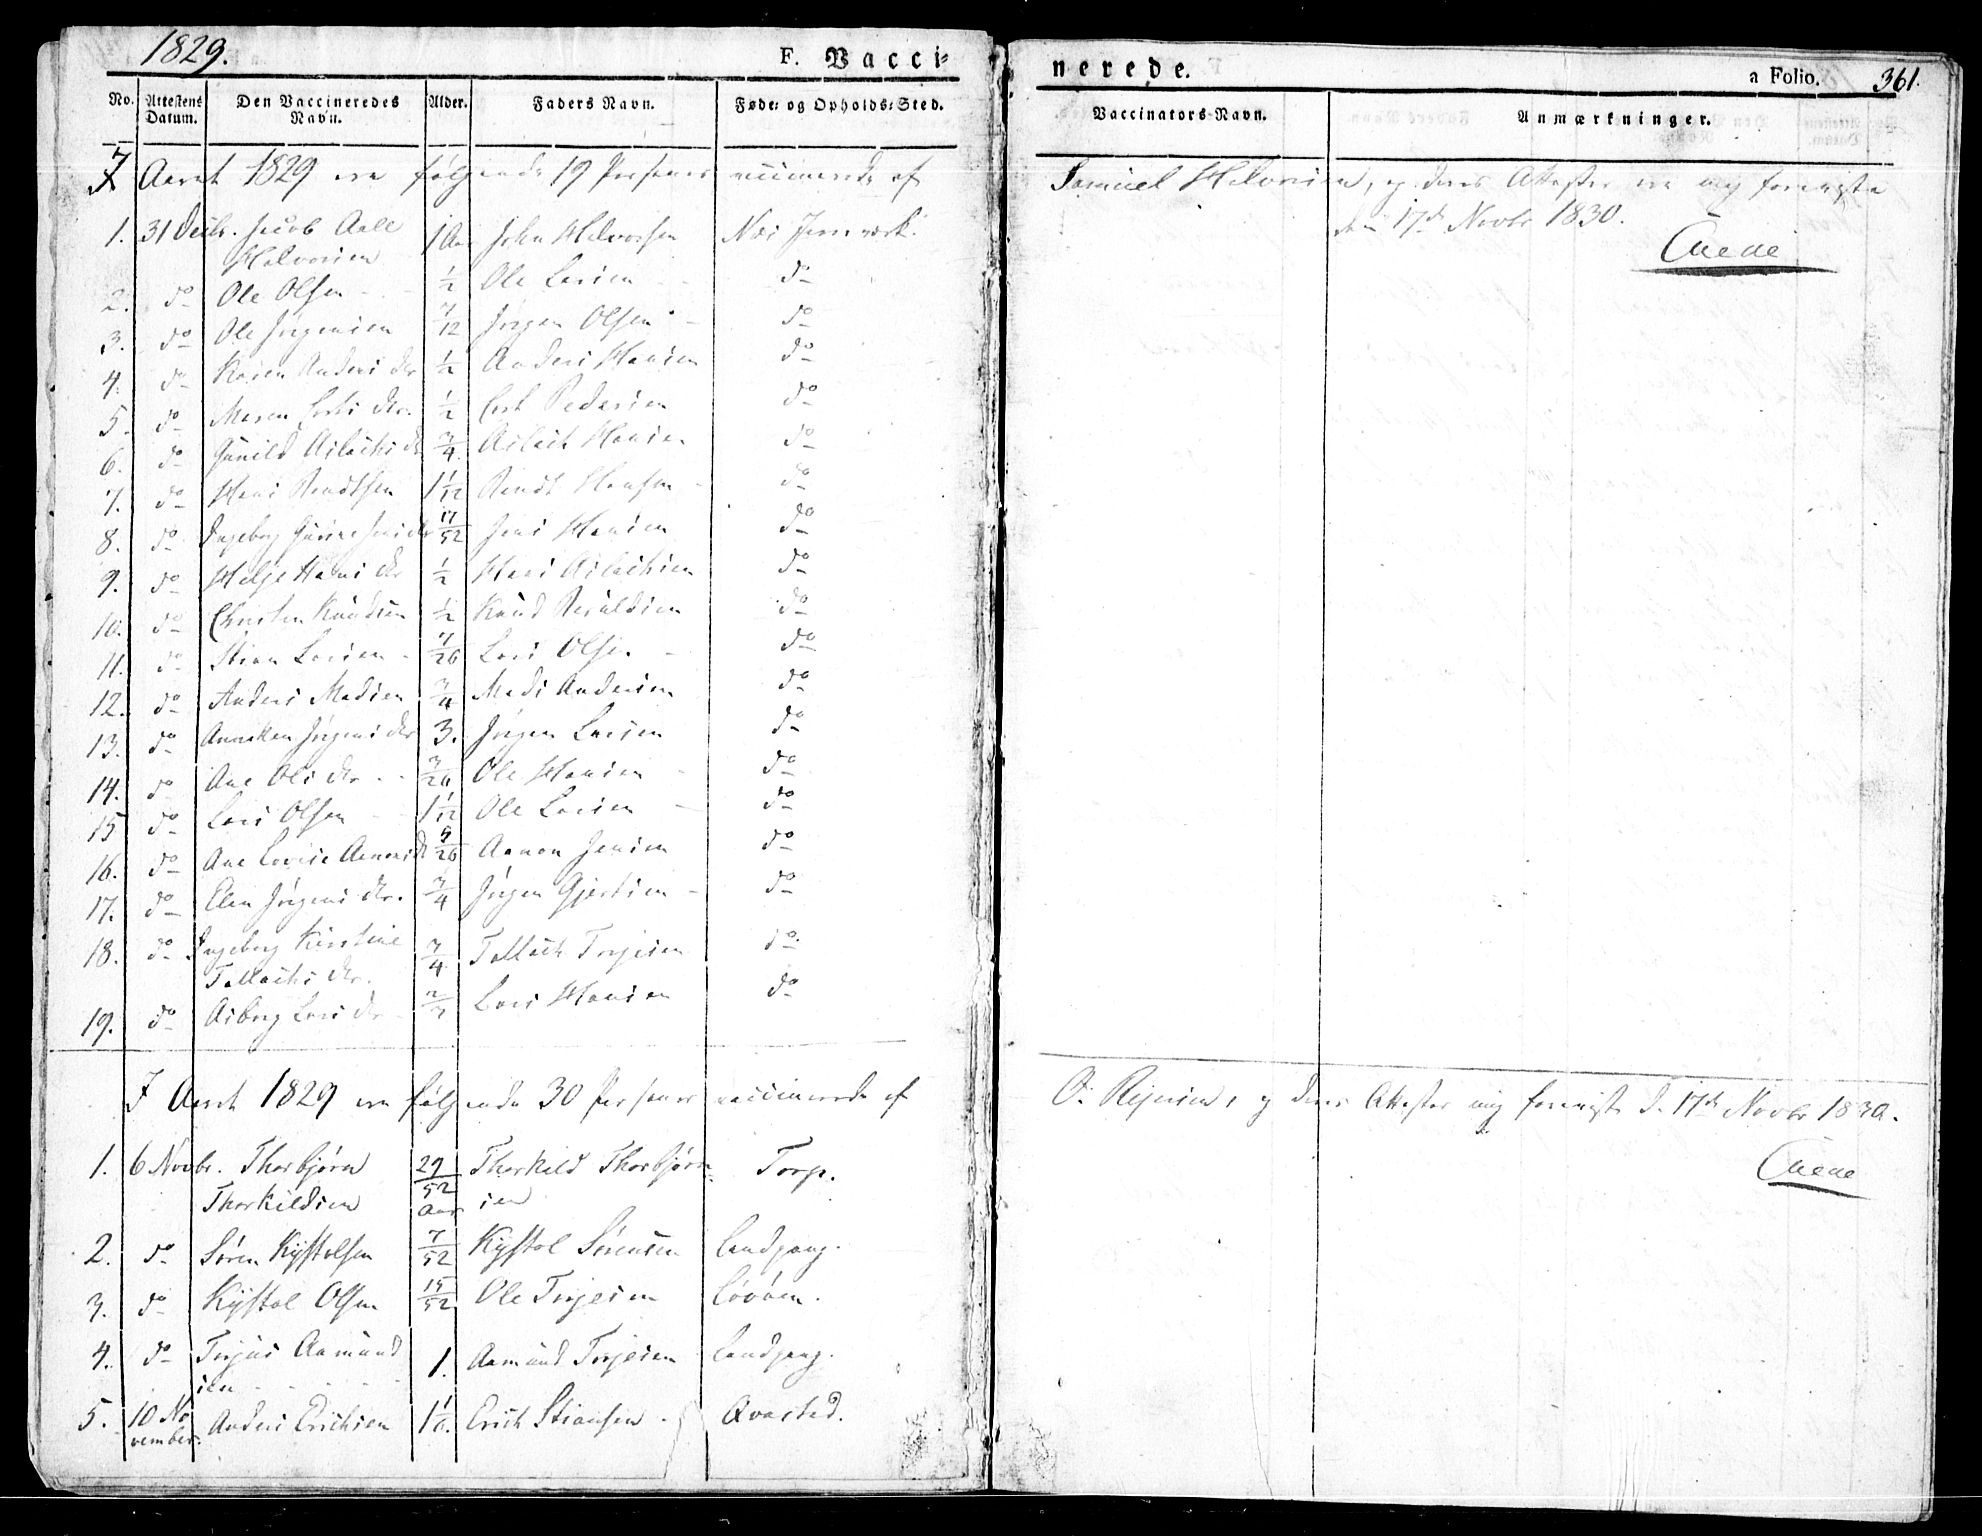 1829.
F. Vacci-
nerede.
a Folio. 361.
No.
Attestens Datum.
Den Vaccineredes Navn.
Alder.
Faders Navn.
Føde- og Opholds-Sted.
Vaccinators Navn.
Anmærkninger.
I Aaret 1829 ere følgende 19 Personer vaccinerede af Samuel Halvorsen, og deres Attester ere mig foreviste
den 17de Novbr 1830.
1. 31 Decbr. Jacob Aall 1 Aar John Halvorsen Næs Jernværk.
Halvorsen
2. do Ole Olsen 1/2 Ole Larsen do
3. do Ole Jörgensen 7/12 Jörgen Olsen do
4. do Karen Anders dtr 1/2 Anders Hansen do
5. do Maren Corts dtr. 1/2 Cort Pedersen do
6. do Gunild Aslachs dtr 3/4 Aslach Hansen do
7. do Hans Bendtsen 1 1/12 Bendt Hansen do
8. do Ingeborg Gurine Jens dtr 17/52 Jens Hansen do
9. do Helje Hans dtr 1/2 Hans Aslachsen do
10. do Christen Knudsen 1/2 Knud do
11. do Stian Larsen 7/26 Lars Olsen do
12. do Anders Madsen 3/4 Mads Andersen do
13. do Anniken Jörgens dtr 3. Jörgen Larsen do
14. do Ane Ols dtr 7/26 Ole Hansen do
15 do Lars Olsen 1 1/12 Ole Larsen do
16. do Ane Lovise Aamons d 9/26 Aamon Jensen do
17. do Elen Jörgens dtr. 3/4 Jörgen Gjertsen do
18. do Ingeborg Kirstine 3/4 Tallach Torjesen do
Tallachs dtr.
19. do Asborg Lars dtr 2/3 Lars Hansen do
I Aaret 1829 ere følgende 30 Personer vaccinerede af O. Rejersen, og deres Attester mig foreviste d. 17de Novbr 1830.
1. 6 Novbr. Thorbjørn 29/52 Thorkild Thorbjørn- Torp.
Thorkildsen Aar sen
2. do Søren Kystolsen 7/52 Kystol Sørensen Landgang.
3. do Kystol Olsen 15/52 Ole Torjesen
4. do Torjus Aamund 1. Aamund Torjesen Landgang.
sen
5. 10 No Anders Erichsen 1 1/6. Erich Stiansen Qvastad.
vember.